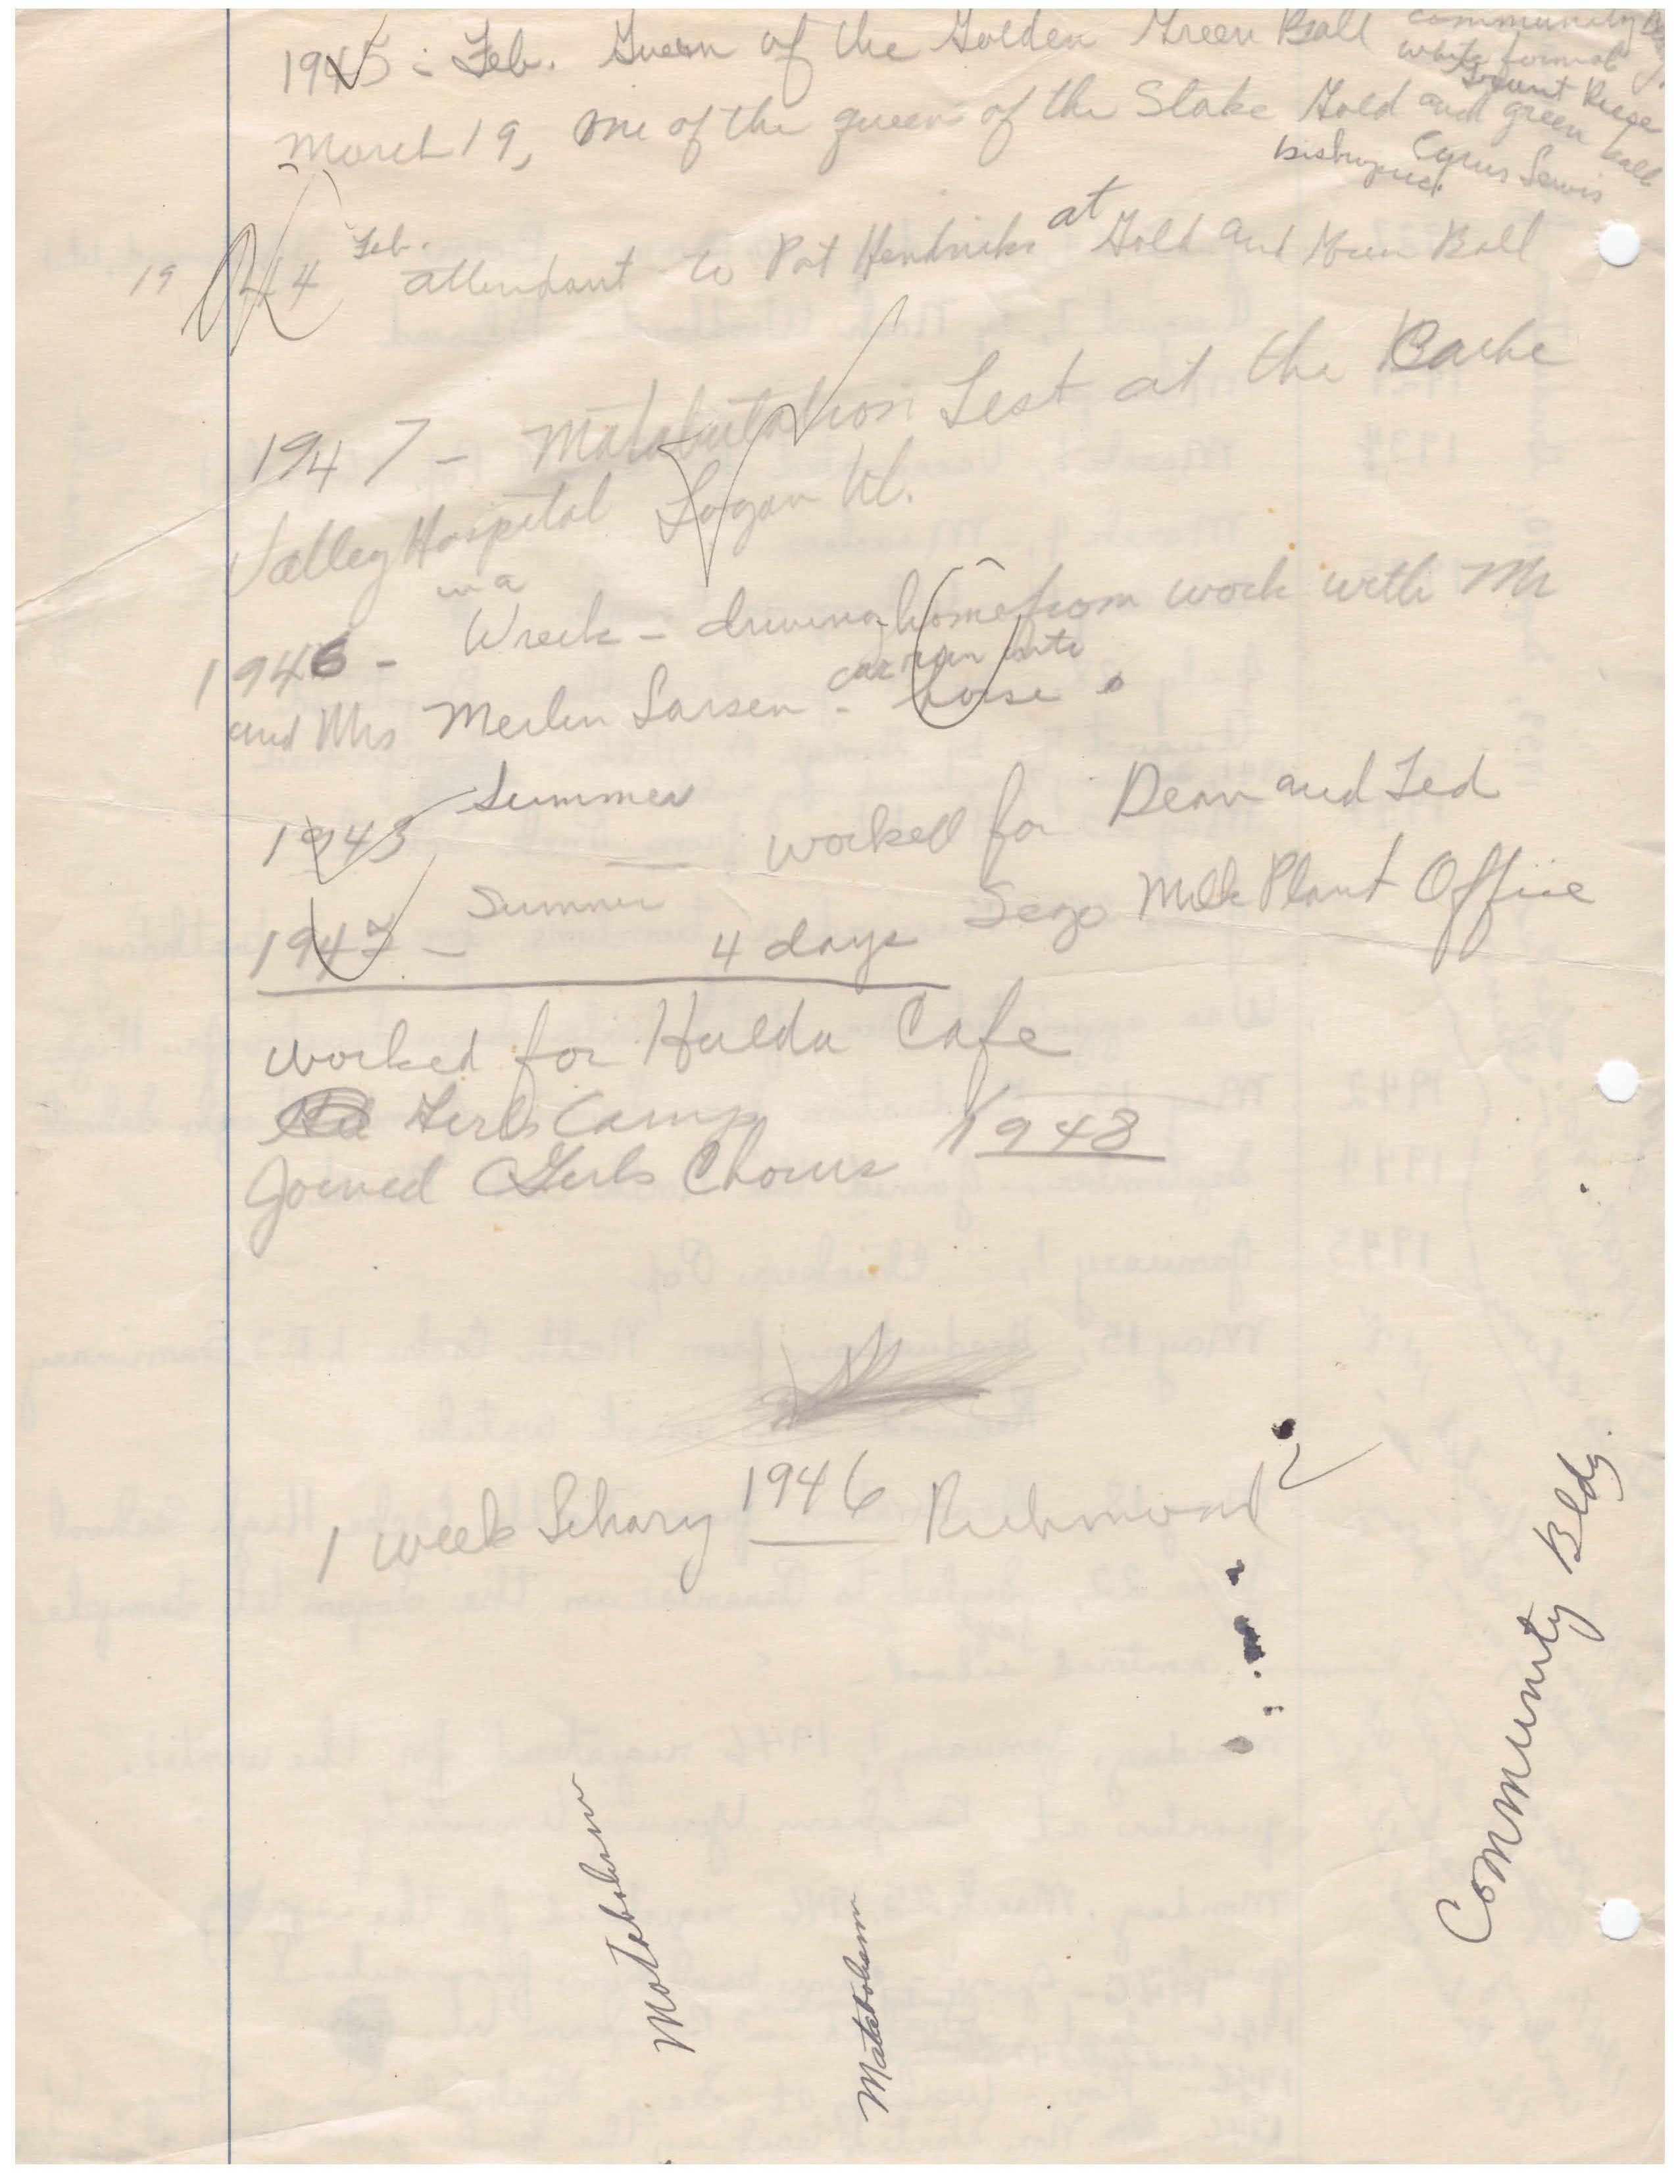 1945 : Feb. Queen of the Golden Green Ball community
white formal
Grant Reese
March 19, one of the queens of the Stake Gold and green ball
Bishopric Cyrus Lewis
1944 Feb. attendant to Pat Hendricks at Gold and Green Ball
1947 - Matabulation Test at the Cache
Valley Hospital Logan Ut.
in a
1946 - Wreck - driving home from work with Mr
and Mrs Merlin Larsen - car ran into horse.
1943 Summer worked for Dean and Ted
1947 - Summer 4 days Sego Milk Plant Office
worked for Hulda Cafe
Girls Camp
Joined Girls Chorus 1948
1 week 1946 Richmond
Community Bldg.
Matabolism
Matabolism